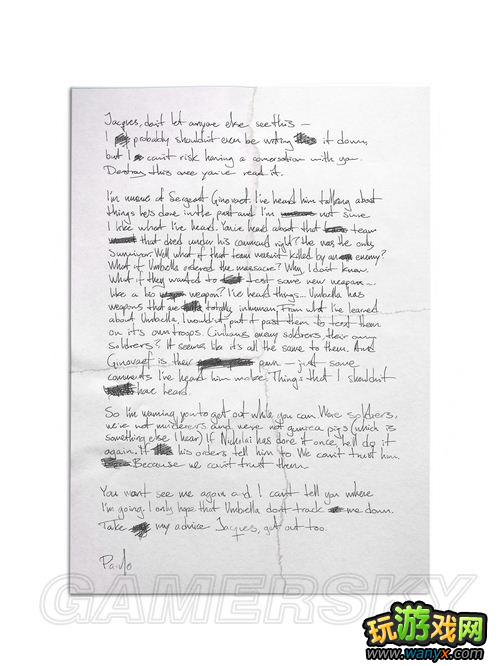 Jacques, don't let anyone else see this —
I probably shouldn't even be writing it down,
but I can't risk having a conversation with you.
Destroy this once you've read it.
I'm unsure of Sergeant Ginovaef. I've heard him talking about
things he's done in the past and I'm not sure
I like what I've heard. You've heard about that team
that died under his command right? He was the only
Survivor. Well what if that team wasn't killed by an enemy?
What if Umbrella ordered the massacre? Why, I don't know.
What if they wanted to test some new weapon —
like a bio weapon? I've heard things... Umbrella has
weapons that are totally inhuman. From what I've learned
about Umbrella, I wouldn't put it past them to test them
on it's own troops. Civilians, enemy soldiers their own
soldiers? It seems like it's all the same to them. And
Ginovaef is their pawn — just some
comments I've heard him make. Things that I shouldn't
have heard.
So I'm warning you to get out while you can. We're soldiers,
we're not murderers and we're not guinea pigs (which is
something else I hear) If Nicholai has done it once, he'll do it
again. If his orders tell him to. We can't trust him.
Because we can't trust them.
You won't see me again and I can't tell you where
I'm going. I only hope that Umbrella don't track me down.
Take my advice Jacques, get out too.
Paulo
GAMERSKY
玩游戏网
www.wanyx.com